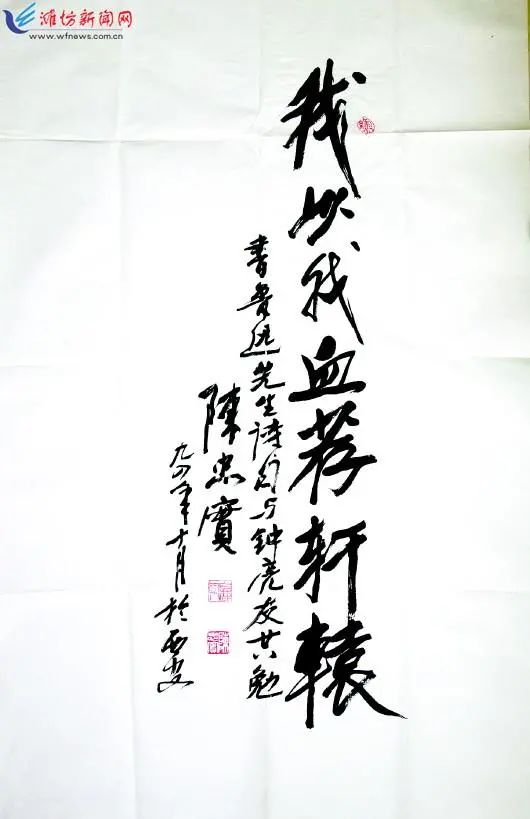 潍坊新闻网
www.wfnews.com.cn
我以我血荐轩辕
书鲁迅先生诗句与钟亮友共勉
陳忠實
九四年十月於西安